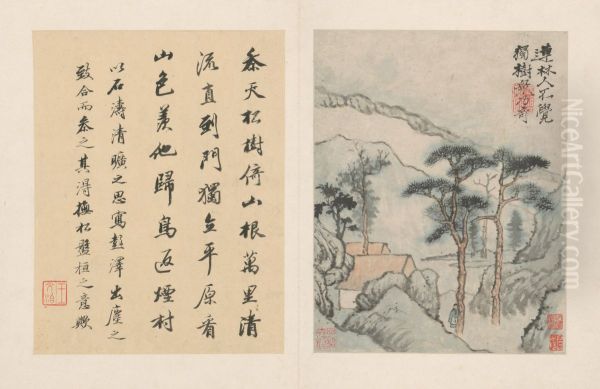 連林人不覺
獨樹衆乃奇
叅天松樹倚山根萬里清
流直到門獨立平原看
山色羨他歸鳥返煙村
以石濤清曠之思寫彭澤出塵之
致合而叅之其得撫松盤桓之意歟
NiceArtGallery.com